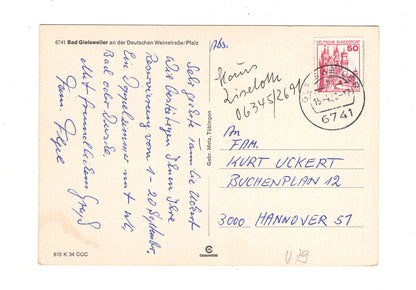 6741 Bad Gleisweiler an der Deutschen Weinstraße/Pfalz
Sehr geehrte Familie Uckert
Wir bestätigen Ihnen Ihre
Reservierung vom 1-20 September
Ein Doppelzimmer mit WC,
Bad oder Dusche.
Mit freundlichem Gruß
Fam.
810 K 34
Gebr. Metz, Tübingen
Abs.
Haus
Liselotte
06345/2691
DEUTSCHE BUNDESPOST
50
6741
An
FAM.
KURT UCKERT
BUCHENPLAN 12
3000 HANNOVER 51
Ü79